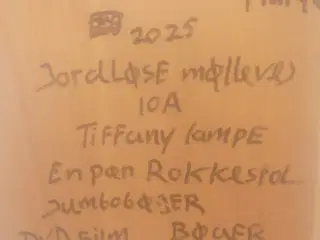 2025
JordLØSE møllevej
10A
Tiffany lampE
En pæn Rokkestol
JumbobØgER
DVD FiLm BØGER